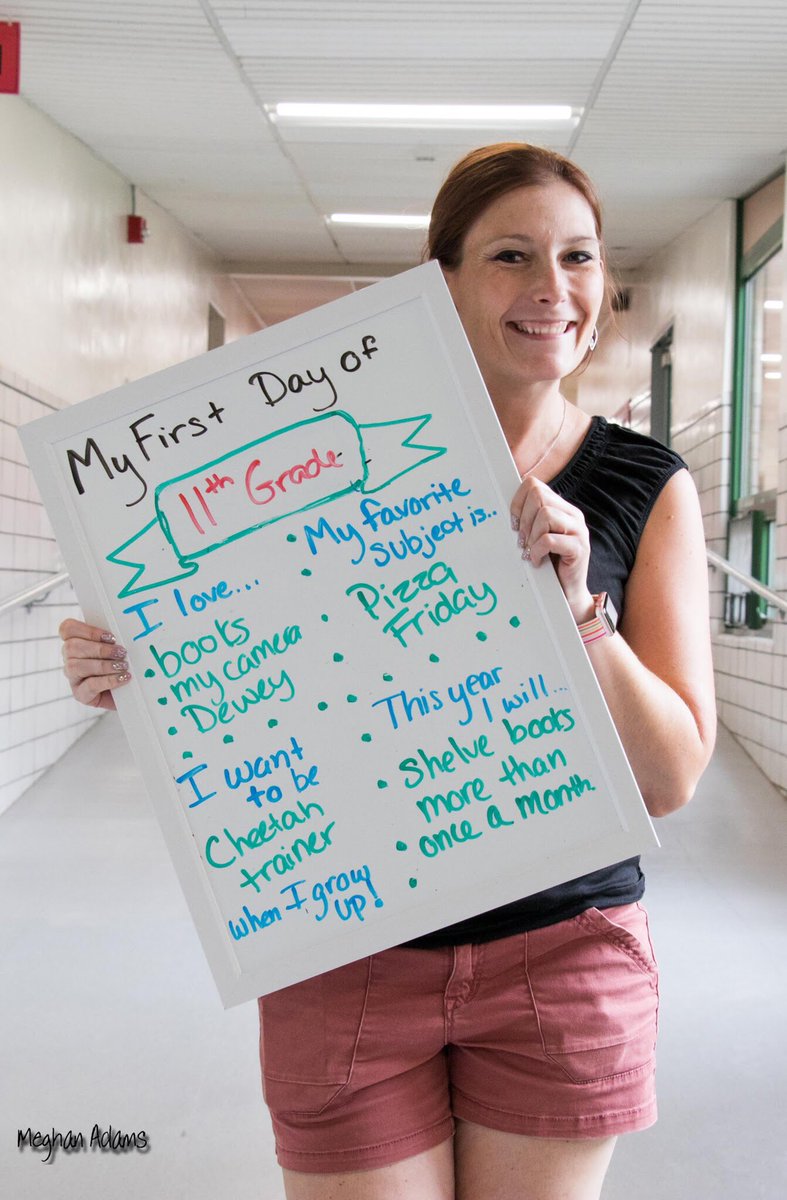 My First Day of
11th Grade
I love...
• books
• my camera
• Dewey
My favorite
subject is..
Pizza
Friday
I want
to be
Cheetah
trainer
when I grow
up!
This year
I will...
shelve books
more than
once a month.
Meghan Adams